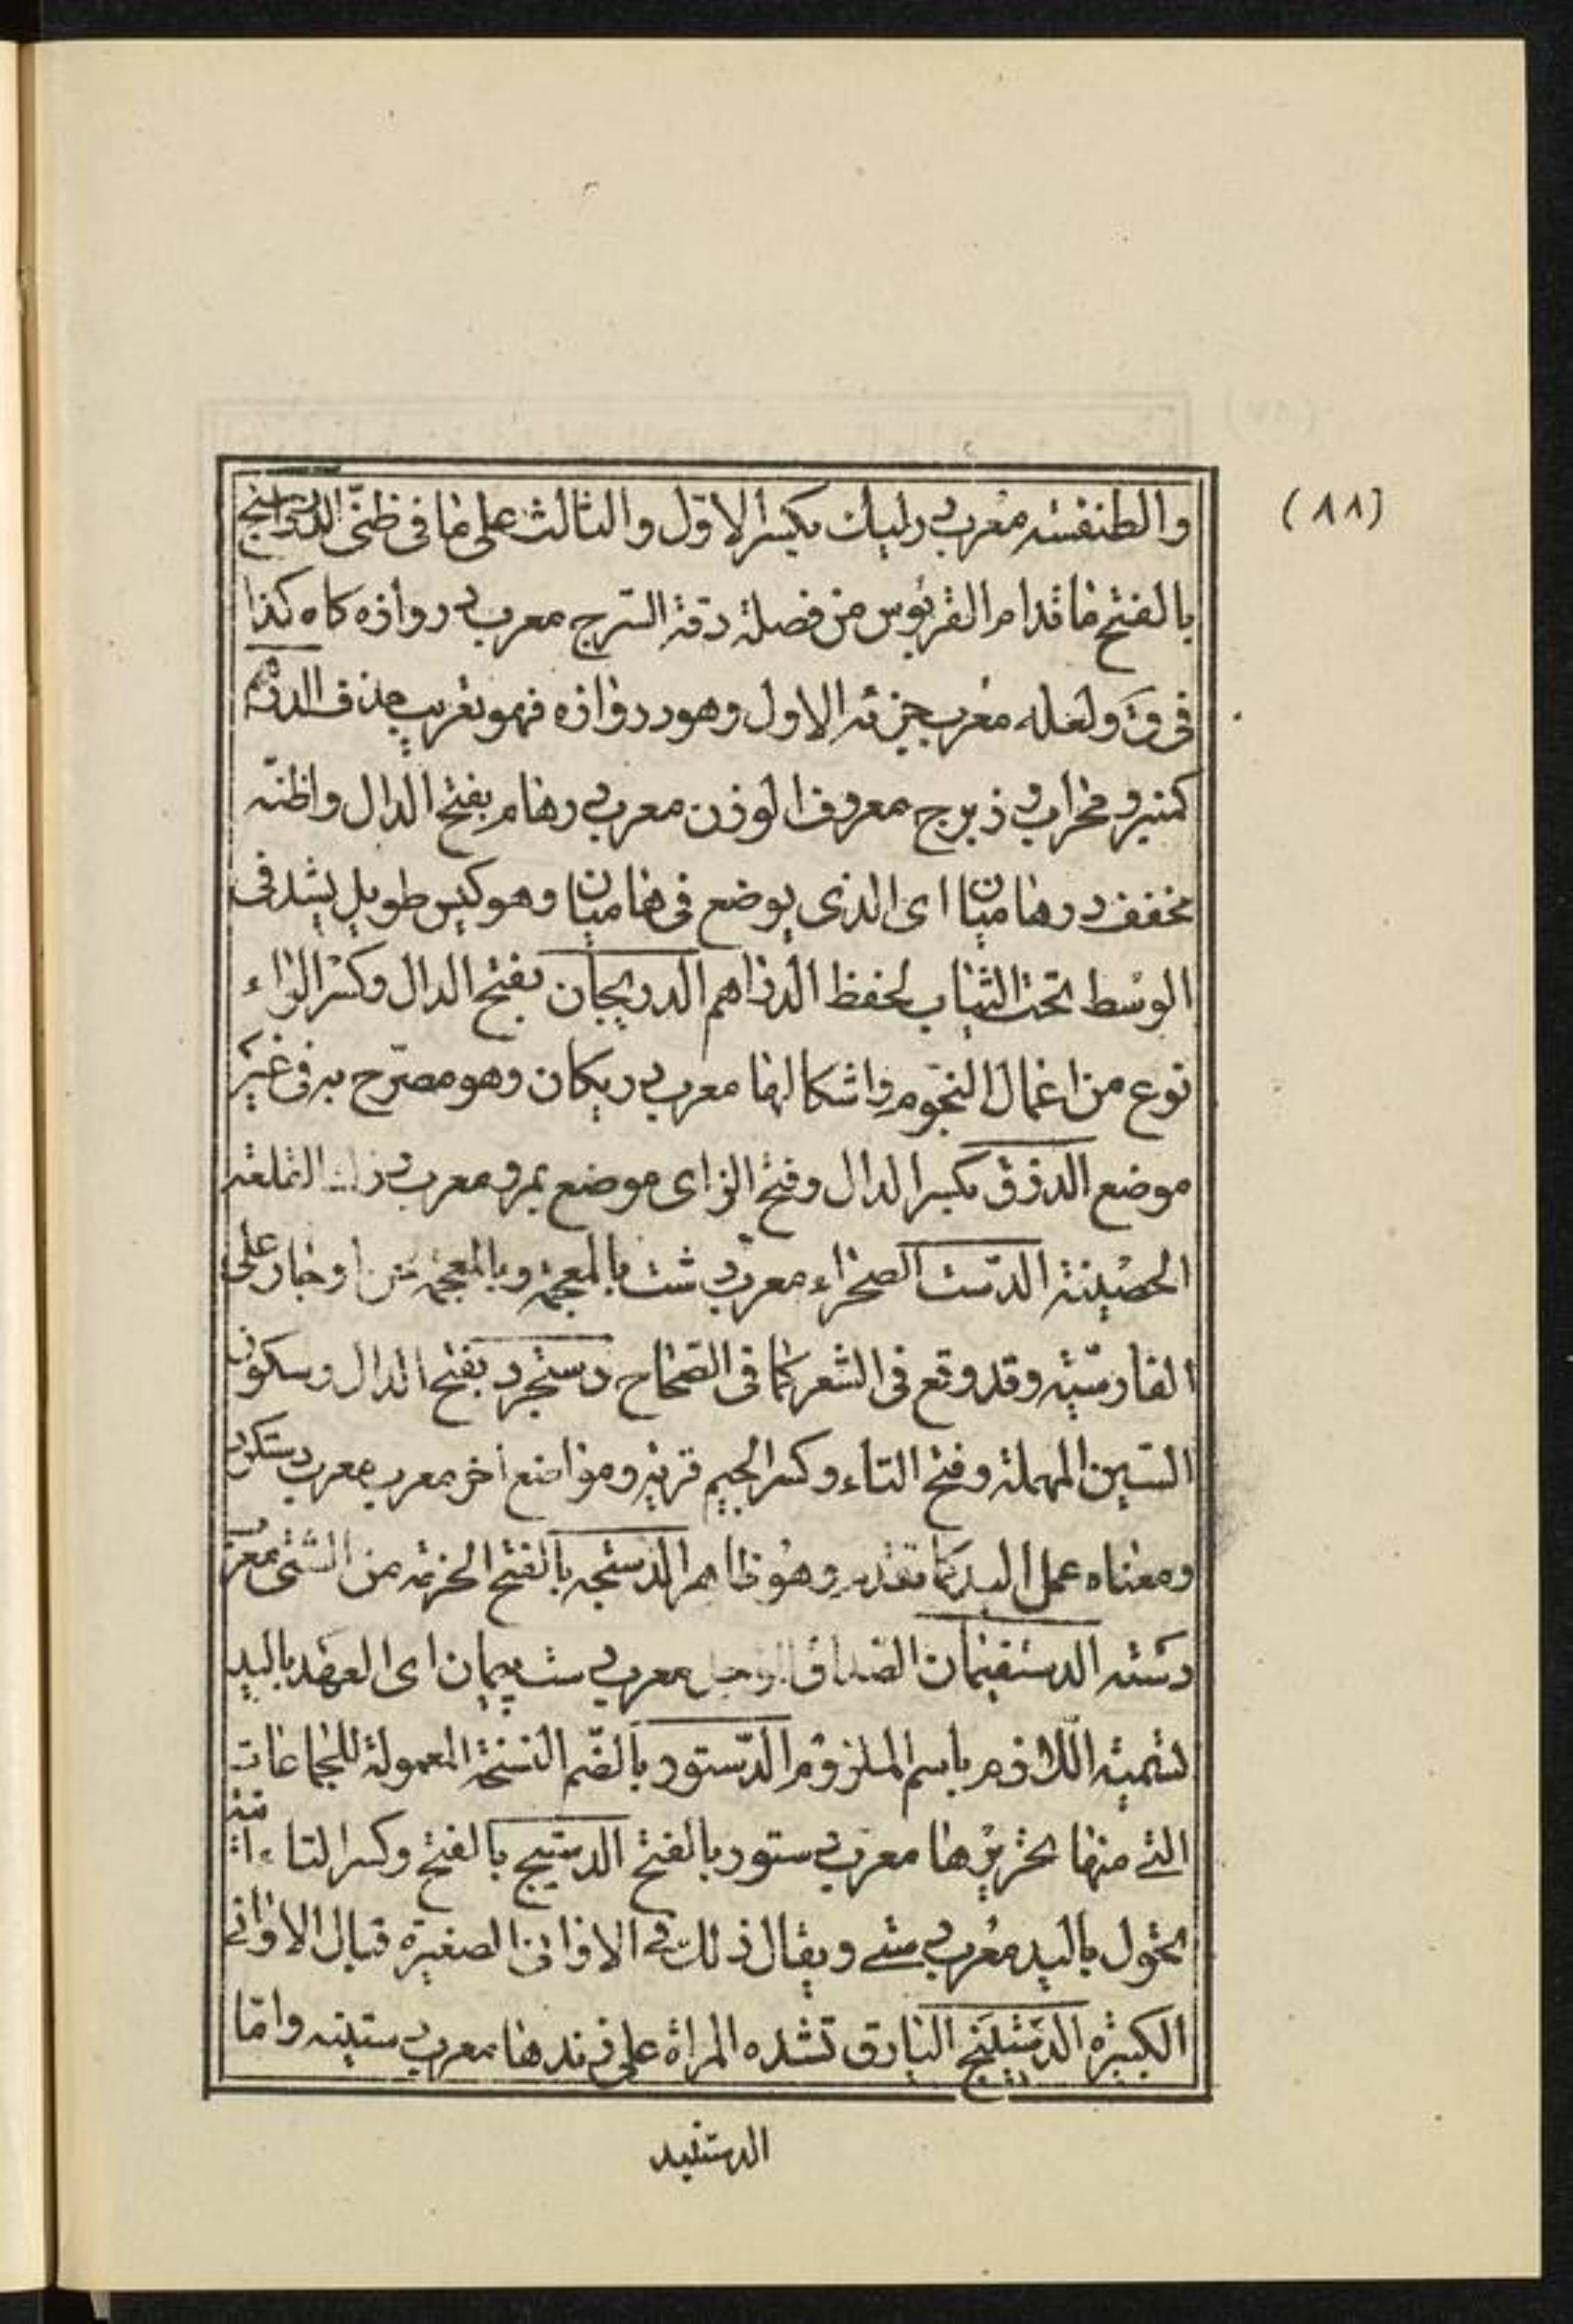 (٨٨)
والطنفسه معرب درليك بكسر الاوّل والثالث على ما في ظنّى الدرواسنج
بالفتح ما قدام القربوس من فضلة دقة السّرج معرب دروازه كاه كذا
فى ق ولعله معرب جزئه الاول وهو دروازه فهو تعريب بحذف الدرهم
كمنبر ومحراب وزبرج معروف الوزن معرب درهام بفتح الدال واظنّه
مخفف درهاميان اى الذى يوضع فى هاميان وهو كيس طويل يشد فى
الوسط تحت الثياب لحفظ الدراهم الدريجان بفتح الدال وكسر الراء
نوع من اعمال النجوم واشكالها معرب دريكان وهو مصرّح به فى غير
موضع الدزق بكسر الدال وفتح الزاى موضع بمرو معرب دزك القلعة
الحصينة الدّست الصحراء معرب دشت بالمعجمة وبالمعجمة من اوخبار على
الفارسّية وقد وقع فى الشعر كما فى الصّحاح دستجرد بفتح الدال وسكون
السّين المهملة وفتح التاء وكسر الجيم قرية ومواضع اخر معرب معرب دستكرد
ومعناه عمل اليد كما تقدم وهو ظاهر الدستجه بالفتح الحزمة من الشئ معرب
دسته الدستفيمان الصداق معرب دست پيمان اى العهد باليد
تسمية اللازم باسم الملزوم الدّستور بالضّم النسخة المعمولة للجماعات
التى منها تحريرها معرب دستور بالفتح الدستيج بالفتح وكسر التاء آنية
تحول باليد معرب دستى ويقال ذلك فى الاوانى الصغيرة قبال الاوانى
الكبيرة الدستينج اليارق تشده المراة على زندها معرب دستينه وامّا
الدستنبد